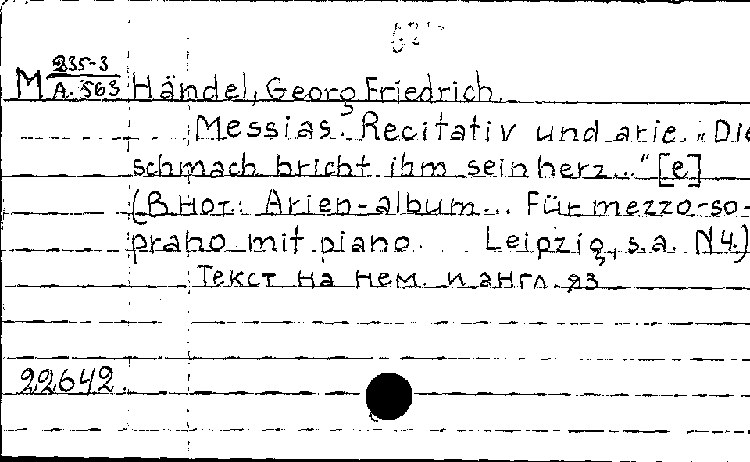 M 235-3
A. 563 Händel, Georg Friedrich.
Messias. Recitativ und arie. „Die
schmach bricht ihm sein herz..." [e]
(В нот: Arien-album... Für mezzo-so-
prano mit piano. Leipzig, s.a. N4.)
Текст на нем. и англ. яз
22642.